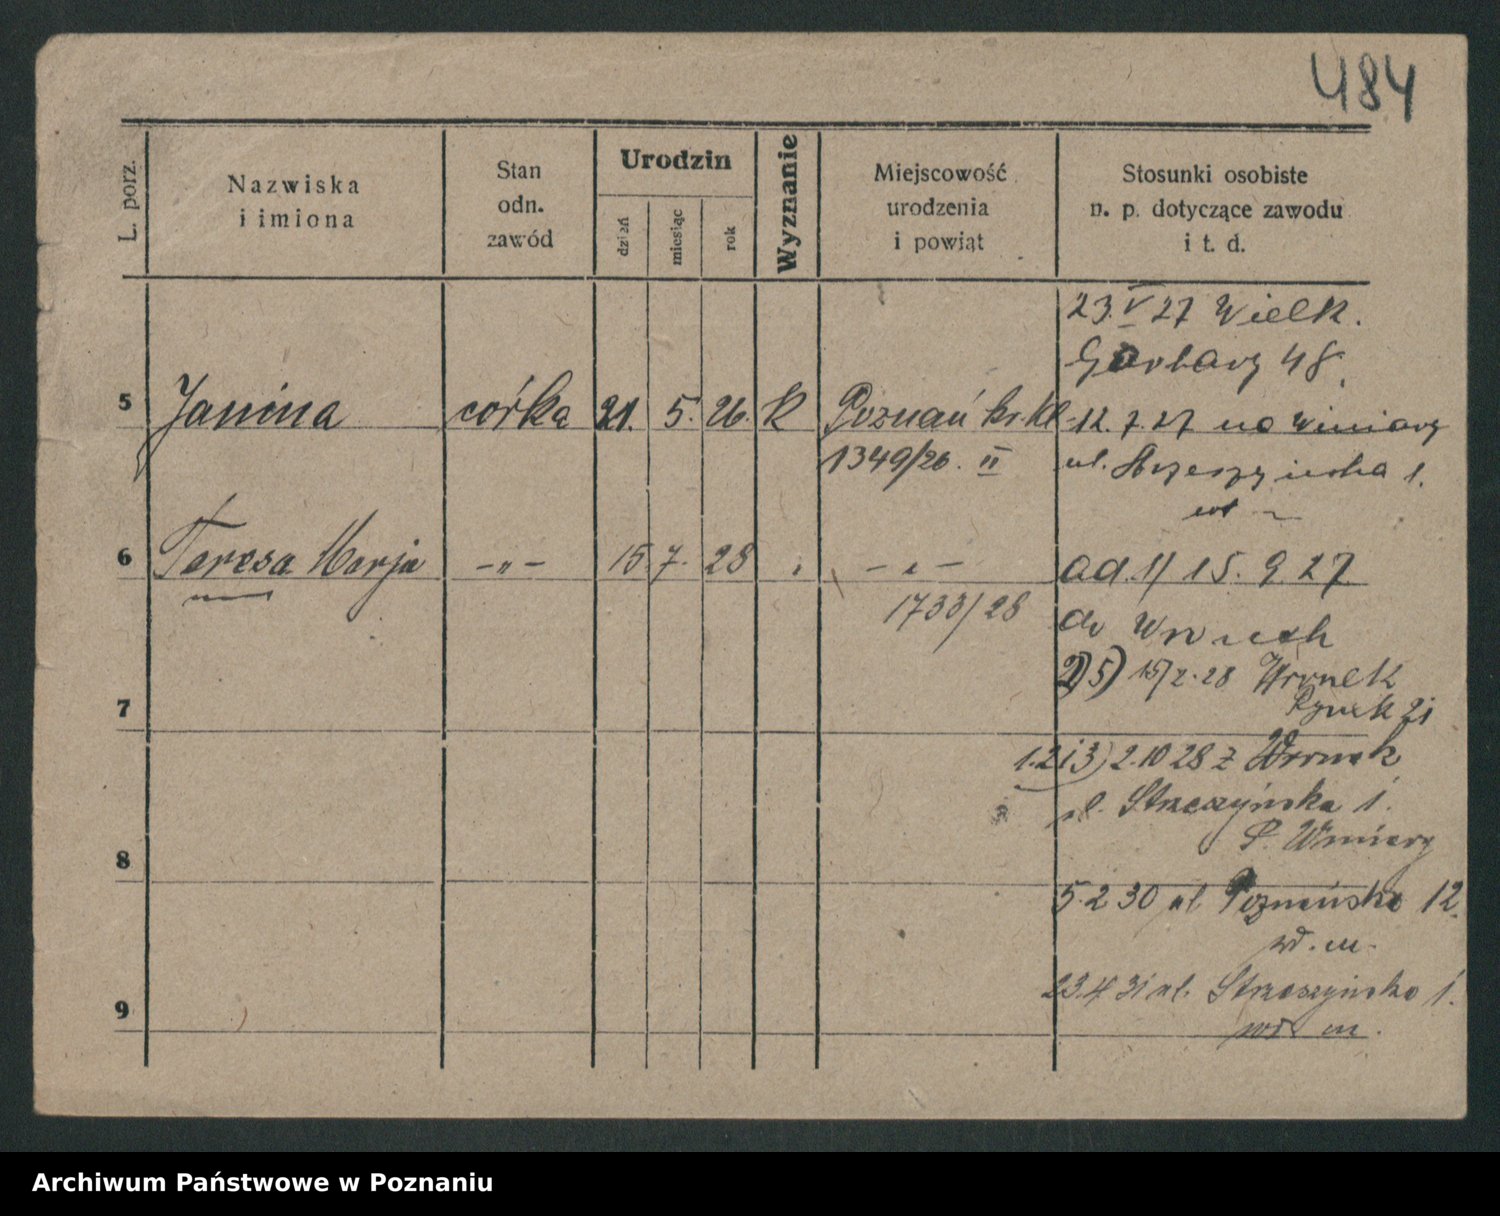 484
L. porz.
Nazwiska
i imiona
Stan
odn.
zawód
Urodzin
dzień
miesiąc
rok
Wyznanie
Miejscowość
urodzenia
i powiąt
Stosunki osobiste
n. p. dotyczące zawodu
i t. d.
23. V 27 Wielk.
Garbary 48.
5 Janina córka 21. 5. 26. k Poznań kr. kl 12. 7. 27 na Winiary
1349/26. II ul. 1.
6 Teresa Marja -„- 15 7. 28 „ -„- ad. 1/ 15. 9 27
1733/28
do Wronek
2) 5) 15/2. 28 Wronek
Rynek 21
7
1. 2 i 3) 2. 10 28 z Wronek
ul. Strzeszyńska 1.
P. Winiary
8
5. 2 30 ul. Poznańska 12.
wł. m.
23. 4 31 ul. Strzeszyńska 1.
wł. m.
9
Archiwum Państwowe w Poznaniu